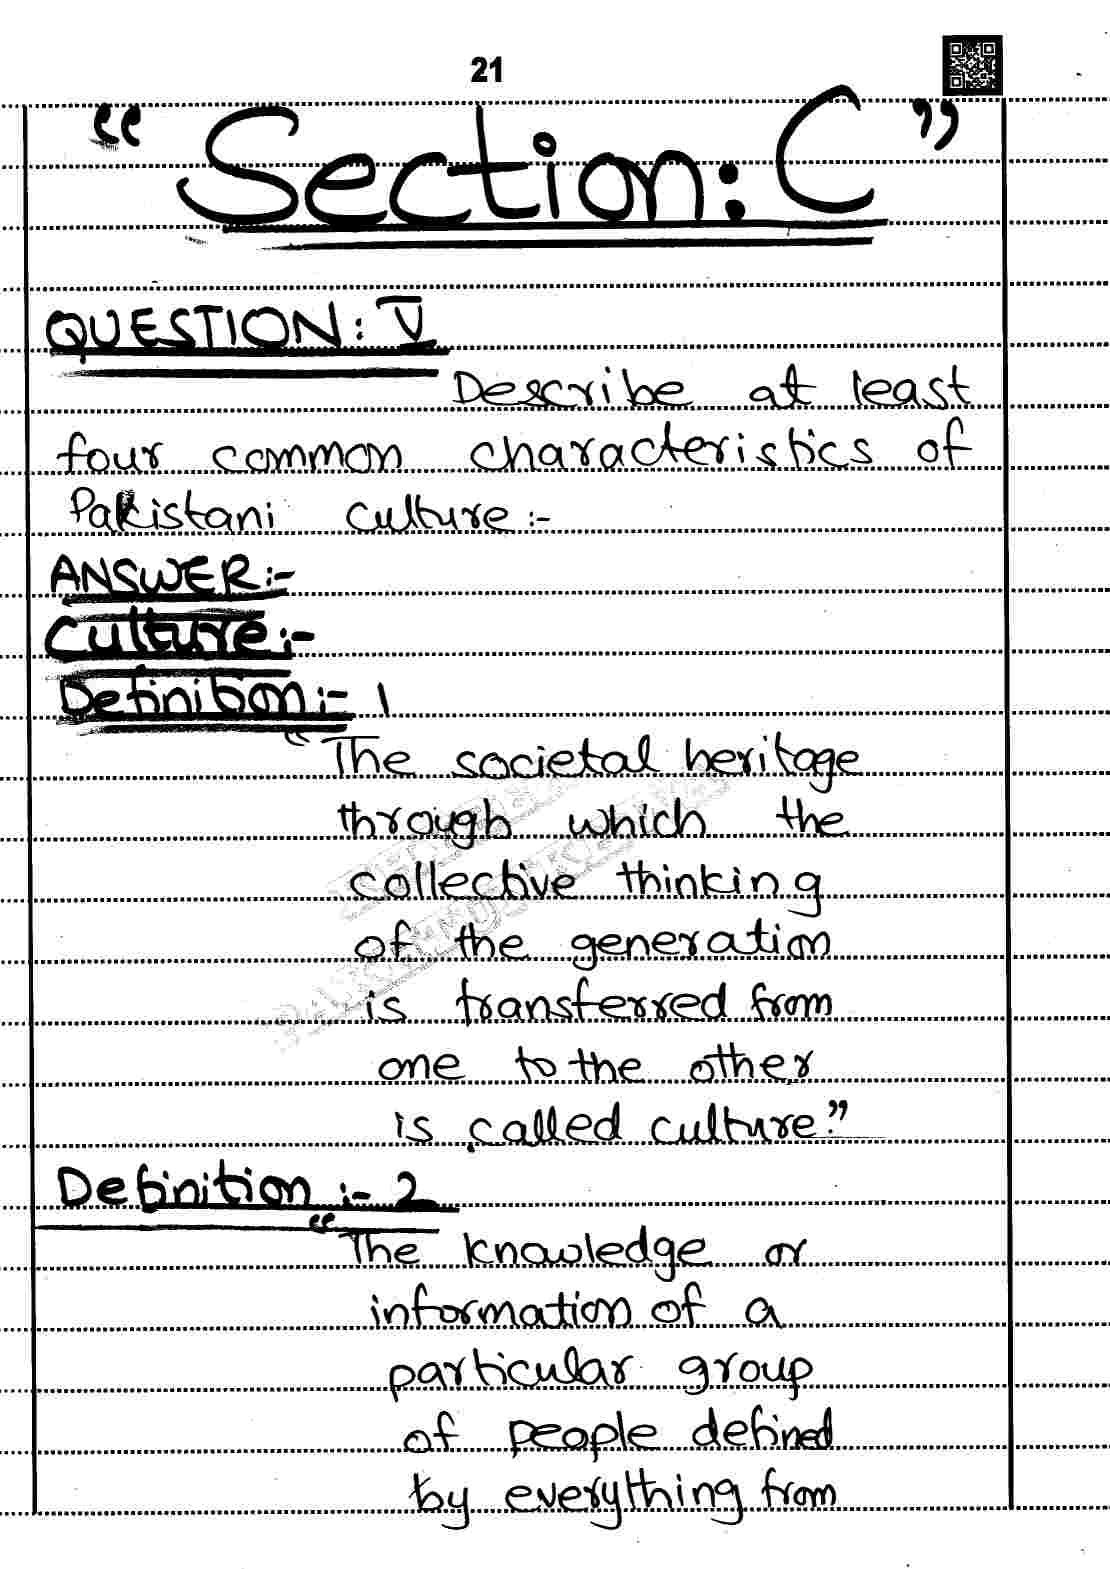 21
“Section: C”
QUESTION: V
Describe at least
four common characteristics of
Pakistani culture:-
ANSWER:-
Culture:-
Definition:- 1
“The societal heritage
through which the
collective thinking
of the generation
is transferred from
one to the other
is called culture.”
Definition:- 2
“The knowledge or
information of a
particular group
of people defined
by everything from